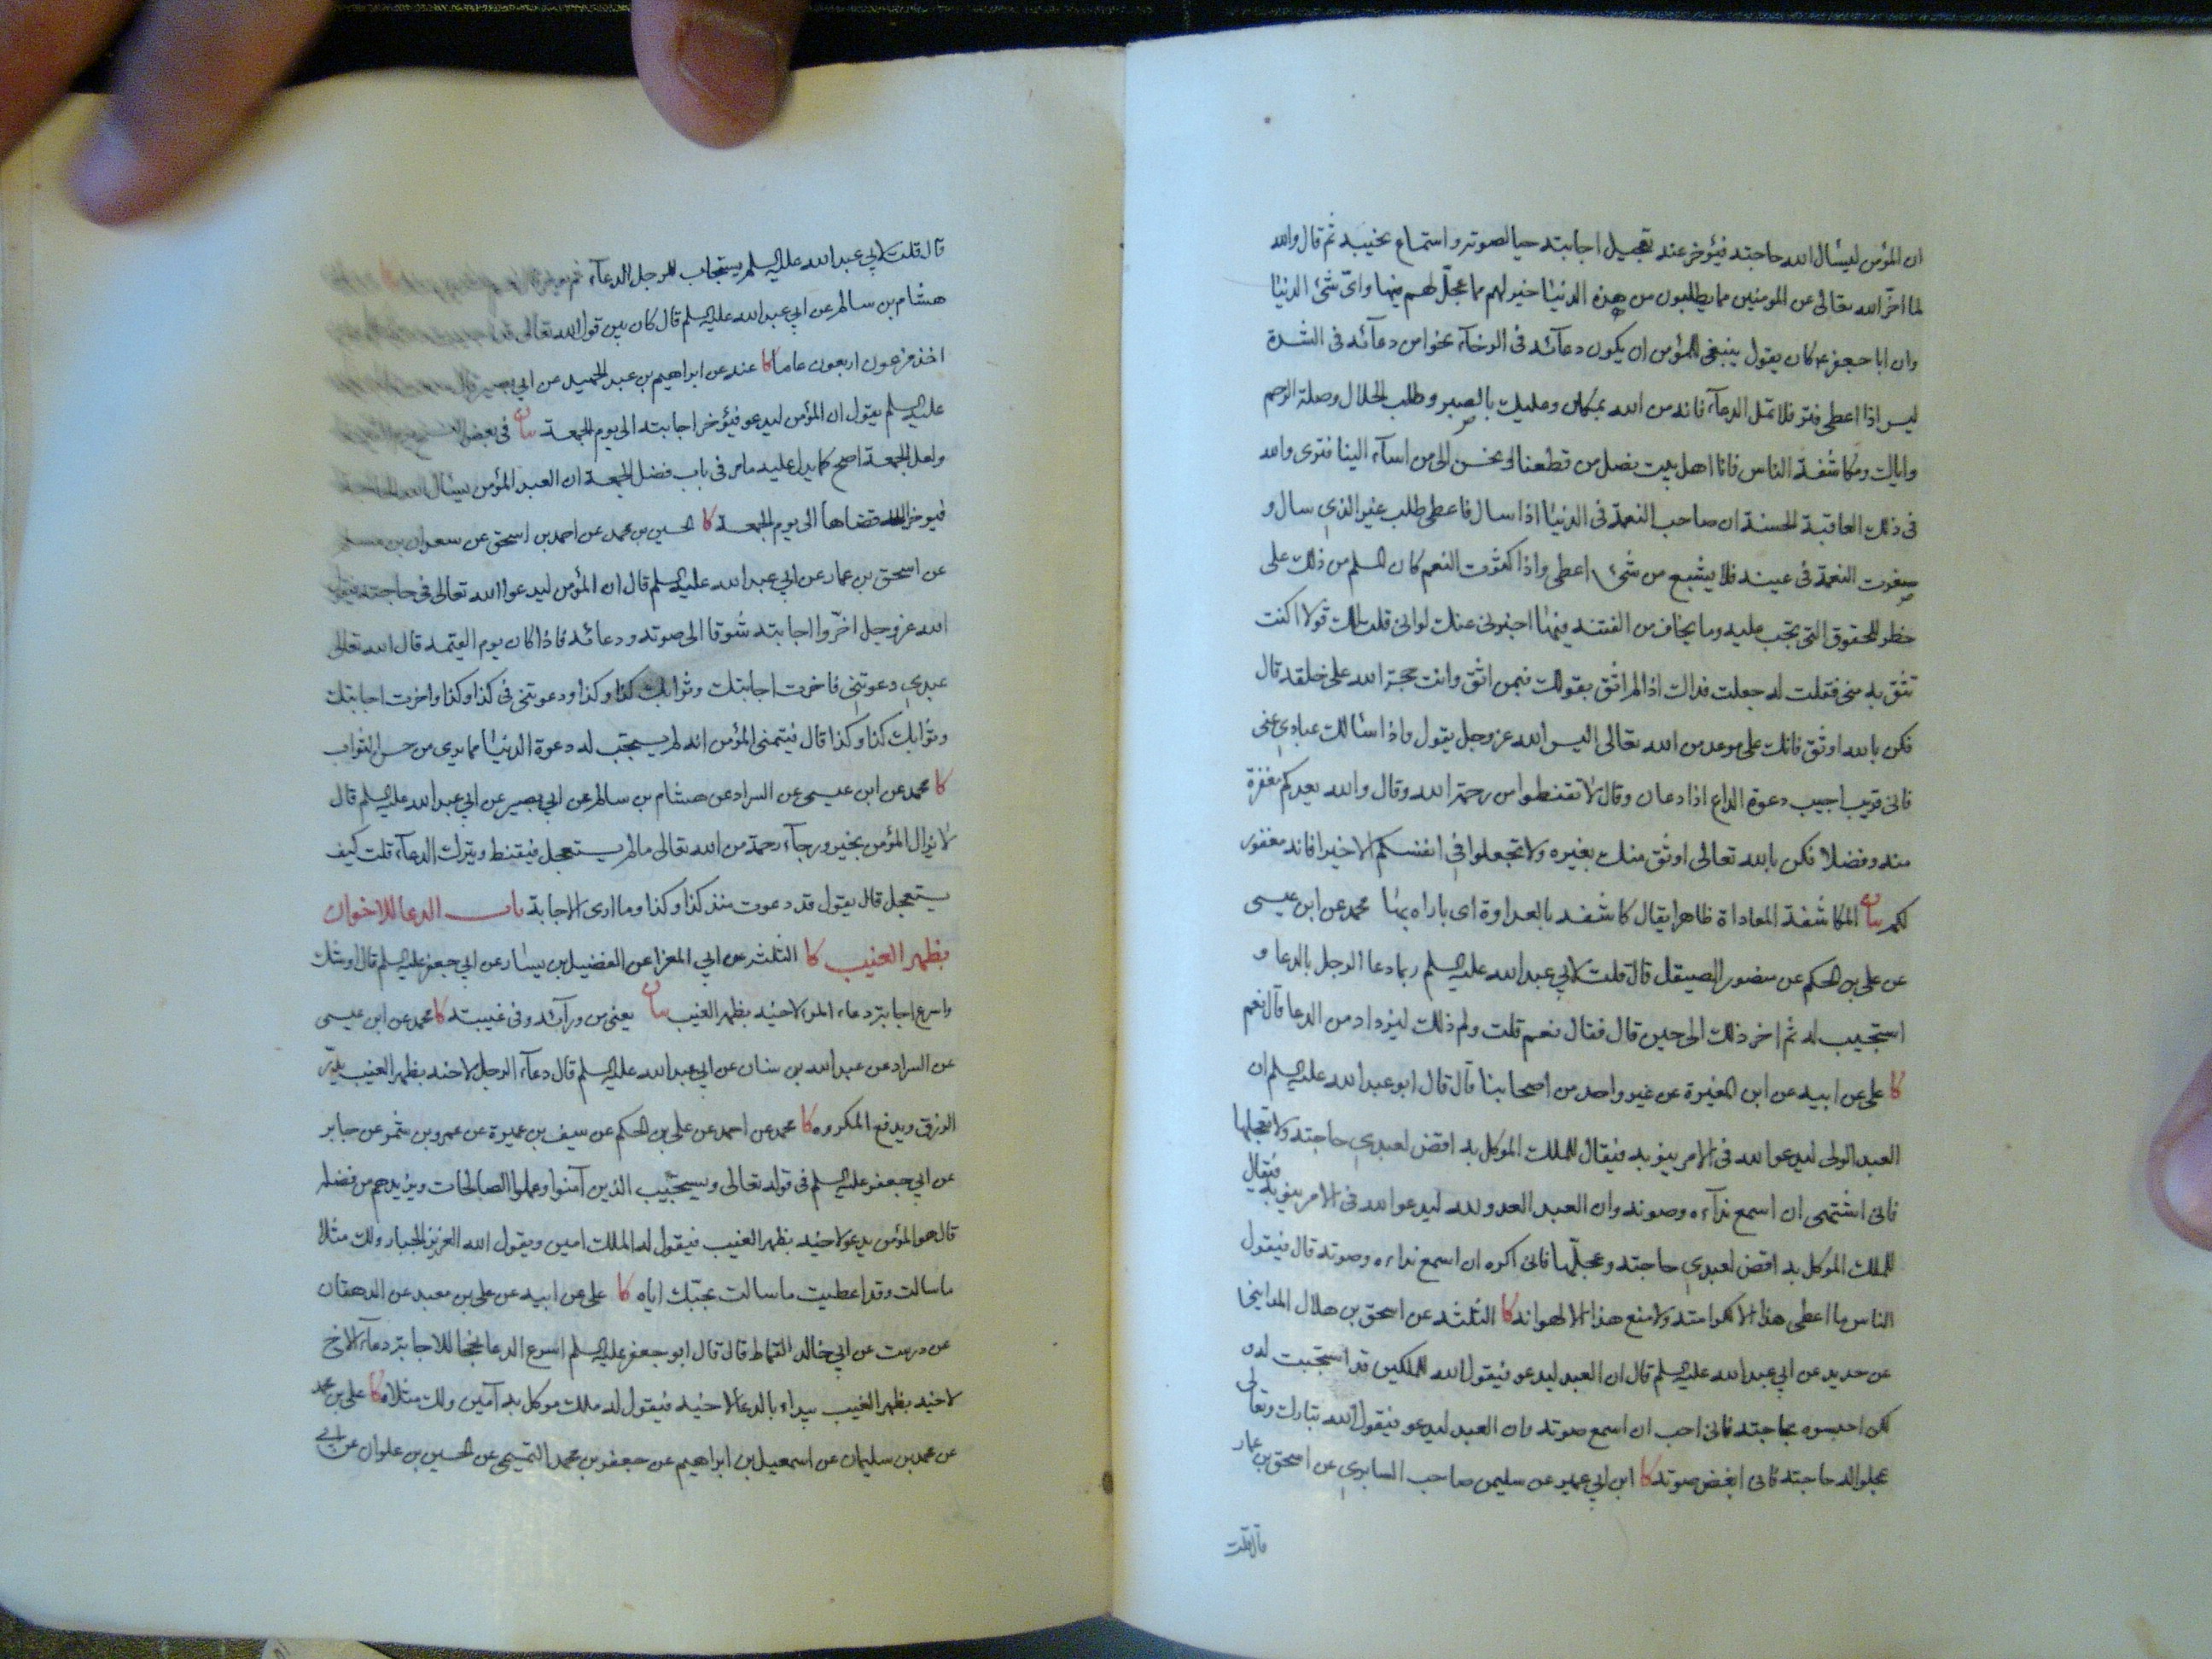 ان المؤمن ليسأل الله حاجته فيؤخر عنه تعجيل اجابته حبا لصوته واستماع نحيبه ثم قال والله
لما اخّر الله تعالى عن المومنين ما يطلبون من هذه الدنيا خير لهم مما عجّل لهم فيها واىّ شئ الدنيا
وان ابا جعفر ع كان يقول ينبغى للمؤمن ان يكون دعآئه فى الرخآء نحوا من دعآئه فى الشدة
ليس اذا اعطى فتر فلا تمل الدعآء فانه من الله بمكان وعليك بالصبر وطلب الحلال وصلة الرحم
واياك ومكاشفة الناس فانا اهل بيت نصل من قطعنا ونحسن الى من اسآء الينا فنرى والله
فى ذلك العاقبة الحسنة ان صاحب النعمة فى الدنيا اذا سال فاعطى طلب غير الذى سال و
صغرت النعمة فى عينه فلا يشبع من شئ اعطى واذا كثرت النعم كان المسلم من ذلك على
خطر للحقوق التى تجب عليه وما يخاف من الفتنة فيها اخبرنى عنك لو انى قلت لك قولا اكنت
تثق به منى فقلت له جعلت فداك اذا لم اثق بقولك فبمن اثق وانت حجة الله على خلقه قال
فكن بالله اوثق فانك على موعد من الله تعالى اليس الله عز وجل يقول واذا سألك عبادى عنى
فانى قريب اجيب دعوة الداع اذا دعان وقال لا تقنطوا من رحمة الله وقال والله يعدكم مغفرة
منه وفضلا فكن بالله تعالى اوثق منك بغيره ولا تجعلوا فى انفسكم الا خيرا فانه مغفور
لكم بيان المكاشفة المعاداة ظاهرا يقال كاشفه بالعداوة اى باداه بها محمد عن ابن عيسى
عن على بن الحكم عن منصور الصيقل قال قلت لابى عبد الله عليه السلم ربما دعا الرجل بالدعا و
استجيب له ثم اخر ذلك الى حين قال فقال نعم قلت ولم ذلك ليزداد من الدعا قال نعم
كا على عن ابيه عن ابن المغيرة عن غير واحد من اصحابنا قال قال ابو عبد الله عليه السلم ان
العبد الولى ليدعو الله فى الامر ينوبه فيقال للملك الموكل به اقض لعبدى حاجته ولا تعجلها
فانى اشتهى ان اسمع ندآءه وصوته وان العبد العدو لله ليدعو الله فى الامر ينوبه فيقال
للملك الموكل به اقض لعبدى حاجته وعجلها فانى اكره ان اسمع نداءه وصوته قال فيقول
الناس ما اعطى هذا الا لكرامته ولا منع هذا الا لهوانه كا الثلثة عن اسحق بن هلال المداينى
عن حديد عن ابى عبد الله عليه السلم قال ان العبد ليدعو فيقول الله للملكين قد استجبت له و
لكن احبسوه بحاجته فانى احب ان اسمع صوته وان العبد ليدعو فيقول الله تبارك وتعالى
عجلوا له حاجته فانى ابغض صوته كا ابن ابى عمير عن سليمن صاحب السابرى عن اسحق بن عمار
قال قلت
قال قلت لابى عبد الله عليه السلم يستجاب للرجل الدعآء ثم
هشام بن سالم عن ابى عبد الله عليه السلم قال كان بين قول الله تعالى
اخذ فرعون اربعون عاما كا عنه عن ابراهيم بن عبد الحميد عن ابى بصير قال
عليه السلم يقول ان المؤمن ليدعو فيؤخر اجابته الى يوم الجمعة بيان فى بعض
ولعل الجمعة اصح كما يدل عليه ما مر فى باب فضل الجمعة ان العبد المؤمن يسأل
فيوخر الله قضاها الى يوم الجمعة كا الحسين بن محمد عن احمد بن اسحق عن سعدان بن مسلم
عن اسحق بن عمار عن ابى عبد الله عليه السلم قال ان المؤمن ليدعوا الله تعالى فى حاجته فيقول
الله عز وجل اخّروا اجابته شوقا الى صوته ودعائه فاذا كان يوم القيمة قال الله تعالى
عبدى دعوتنى فاخرت اجابتك وثوابك كذا وكذا ودعوتنى فى كذا وكذا واخرت اجابتك
وثوابك كذا وكذا قال فيتمنى المؤمن انه لم يستجب له دعوة الدنيا مما يرى من حسن الثواب
كا محمد عن ابن عيسى عن السراد عن هشام بن سالم عن ابى بصير عن ابى عبد الله عليه السلم قال
لا يزال المؤمن بخير ورجآء رحمة من الله تعالى ما لم يستعجل فيقنط ويترك الدعآء قلت كيف
يستعجل قال يقول قد دعوت منذ كذا وكذا وما ارى الاجابة باب الدعا للاخوان
بظهر الغيب كا الثلثة عن ابى المغرا عن الفضيل بن يسار عن ابى جعفر عليه السلم قال اوشك
واسرع اجابة دعاء المرء لاخيه بظهر الغيب بيان يعنى من ورآئه وفى غيبته كا محمد عن ابن عيسى
عن السراد عن عبد الله بن سنان عن ابى عبد الله عليه السلم قال دعآء الرجل لاخيه بظهر الغيب يدرّ
الرزق ويدفع المكروه كا محمد عن احمد عن على بن الحكم عن سيف بن عميرة عن عمرو بن شمر عن جابر
عن ابى جعفر عليه السلم فى قوله تعالى ويستجيب الذين آمنوا وعملوا الصالحات ويزيدهم من فضله
قال هو المؤمن يدعو لاخيه بظهر الغيب فيقول له الملك امين ويقول الله العزيز الجبار ولك مثلا
ما سالت وقد اعطيت ما سالت بحبك اياه كا على عن ابيه عن على بن معبد عن الدهقان
عن درست عن ابى خالد القماط قال قال ابو جعفر عليه السلم اسرع الدعا نجحا للاجابة دعآء الاخ
لاخيه بظهر الغيب يبداء بالدعا لاخيه فيقول له ملك موكل به آمين ولك مثلاه كا على بن محمد
عن محمد بن سليمان عن اسمعيل بن ابراهيم عن جعفر بن محمد التميمى عن الحسين بن علوان عن ابى